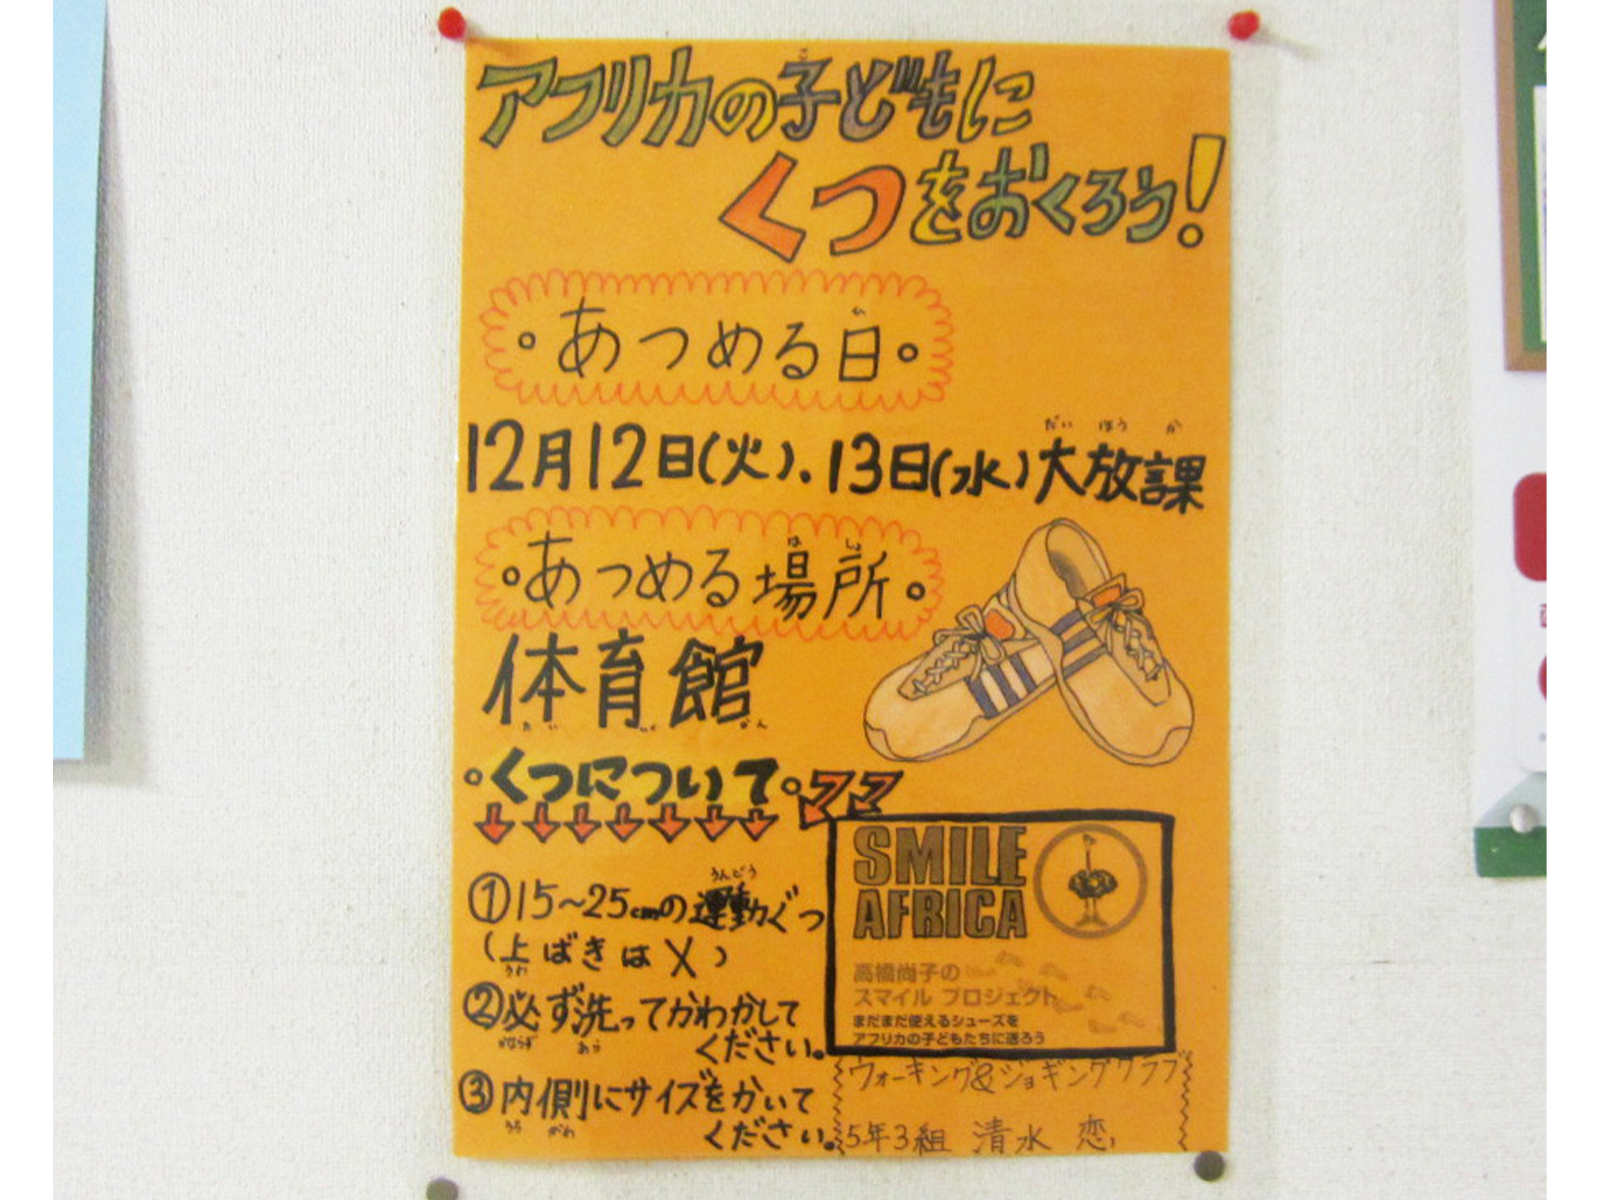 アフリカの子どもに
くつをおくろう!
あつめる日
12月12日(火).13日(水)大放課
あつめる場所
体育館
くつについて
①15~25cmの運動ぐつ
(上ばきは×)
②必ず洗ってかわかして
ください。
③内側にサイズをかいて
ください。
SMILE
AFRICA
高橋尚子の
スマイル プロジェクト
まだまだ使えるシューズを
アフリカの子どもたちに送ろう
ウォーキング&ジョギングクラブ
5年3組 清水 恋